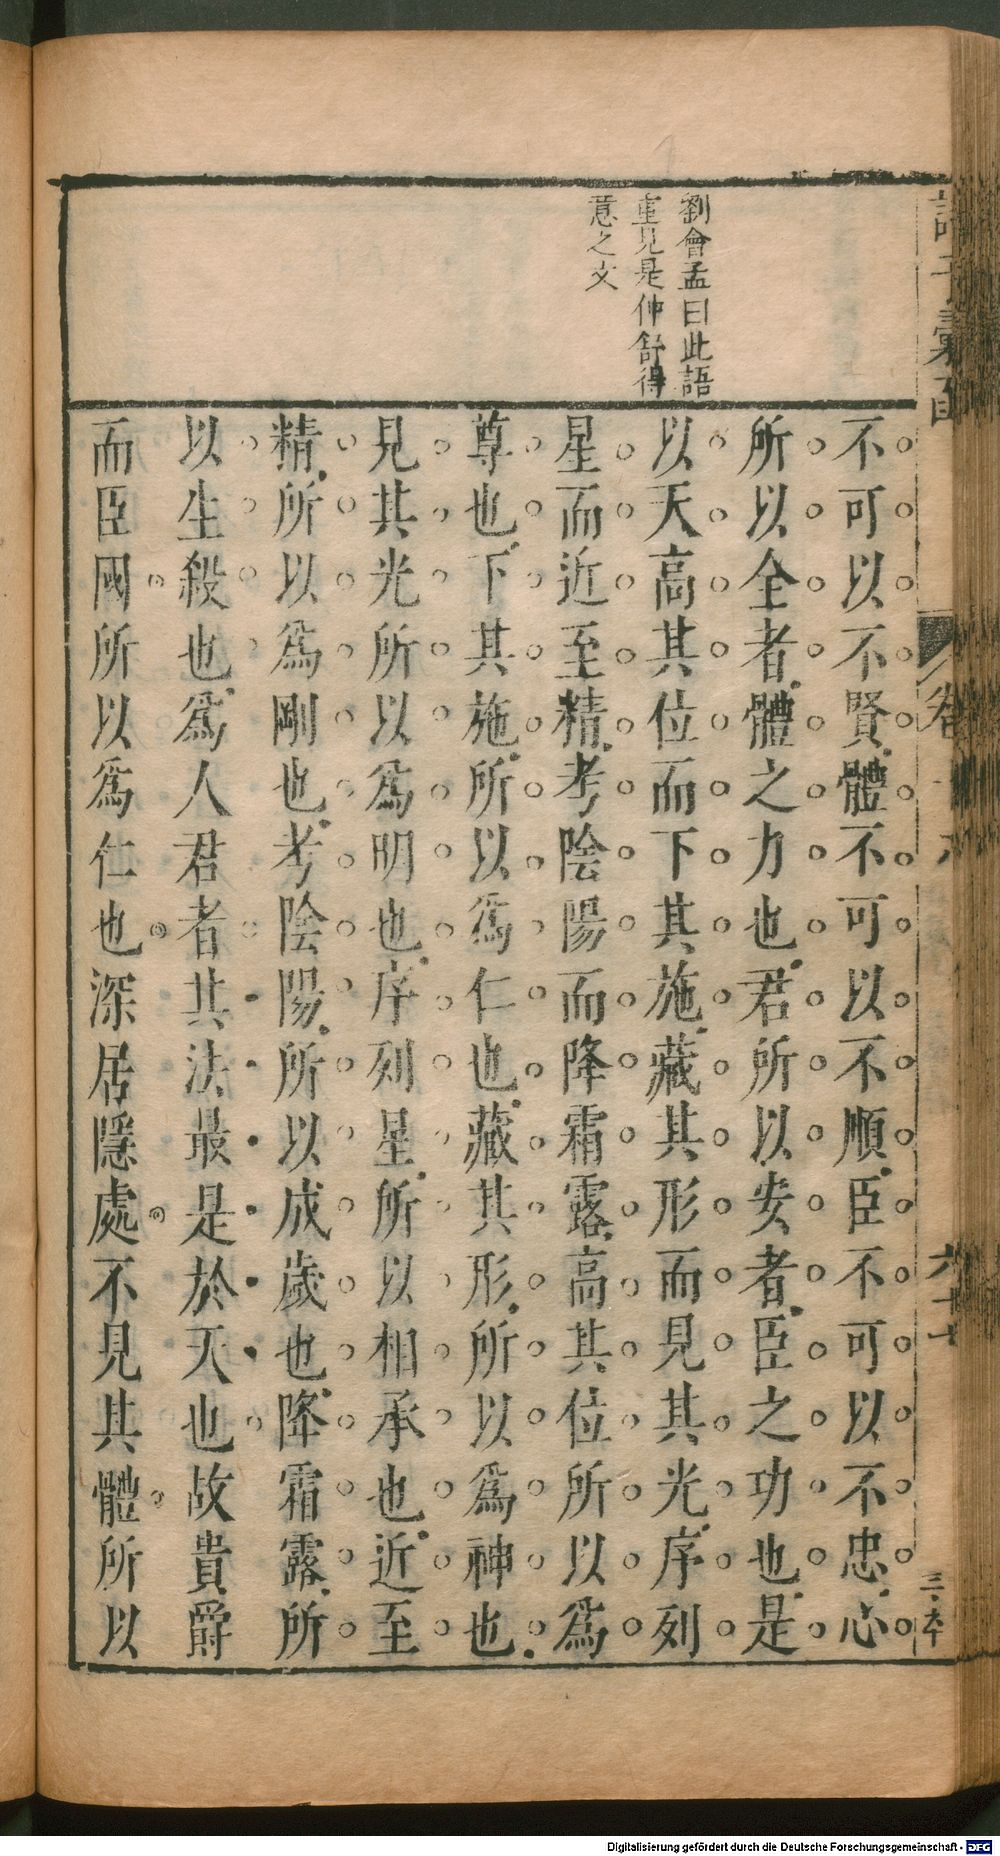 劉會孟曰此語
重見是仲舒得
意之文
不可以不賢體不可以不順臣不可以不忠心
所以全者體之力也君所以安者臣之功也是
以天高其位而下其施藏其形而見其光序列
星而近至精考陰陽而降霜露高其位所以為
尊也下其施所以為仁也藏其形所以為神也
見其光所以為明也序列星所以相承也近至
精所以為剛也考陰陽所以成歲也降霜露所
以生殺也為人君者其法最是於天也故貴爵
而臣國所以為仁也深居隱處不見其體所以
子彙函 卷 六十七 三本
Digitalisierung gefördert durch die Deutsche Forschungsgemeinschaft - DFG